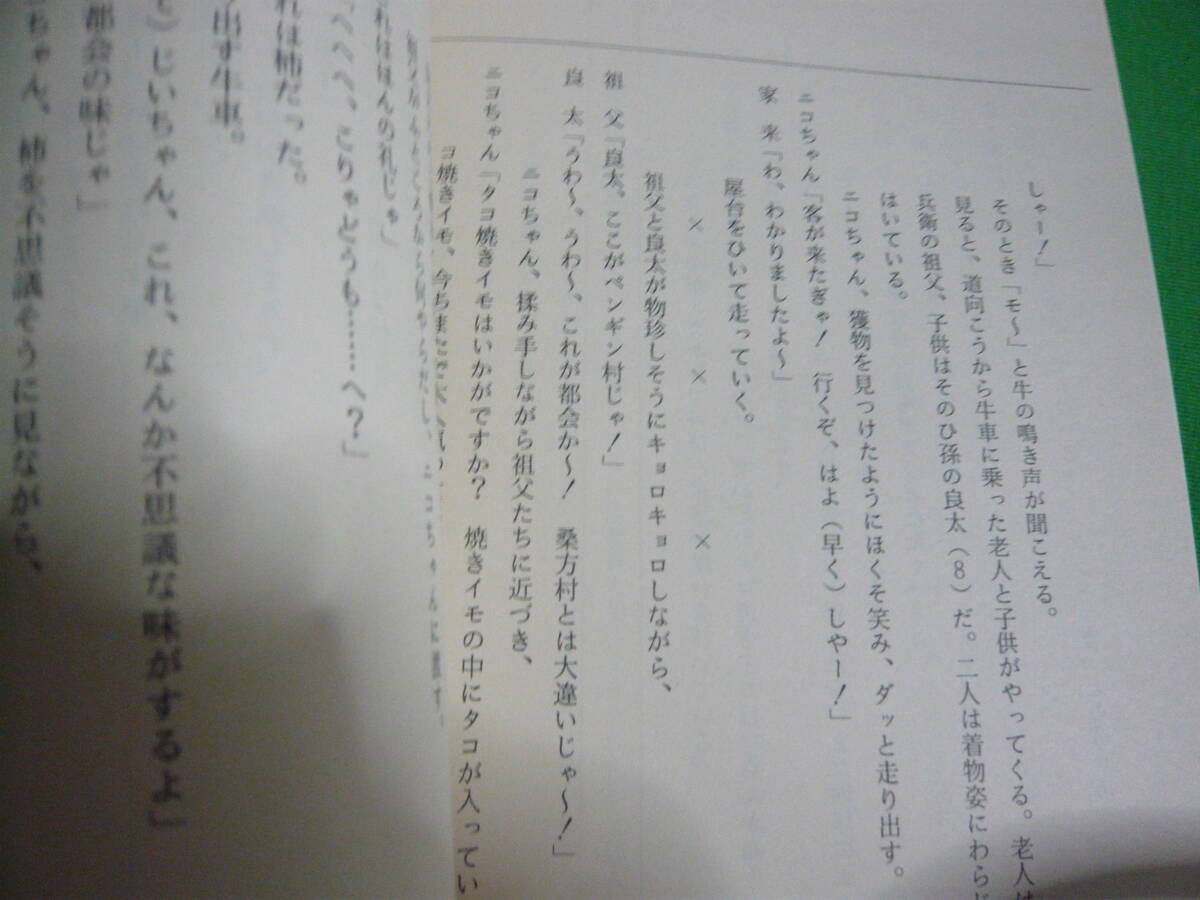 しゃー！」
そのとき「モ〜」と牛の鳴き声が聞こえる。
見ると、道向こうから牛車に乗った老人と子供がやってくる。老人は
兵衛の祖父、子供はそのひ孫の良太（８）だ。二人は着物姿にわらじ
はいている。
ニコちゃん、獲物を見つけたようにほくそ笑み、ダッと走り出す。
ニコちゃん「客が来たぎゃ！　行くぞ、はよ（早く）しやー！」
家　来「わ、わかりましたよ〜」
屋台をひいて走っていく。
×　×　×
祖父と良太が物珍しそうにキョロキョロしながら、
祖　父「良太、ここがペンギン村じゃ！」
良　太「うわ〜、うわ〜、これが都会か〜！　桑方村とは大違いじゃ〜！」
ニコちゃん、揉み手しながら祖父たちに近づき、
ニコちゃん「タコ焼きイモはいかがですか？　焼きイモの中にタコが入ってい
コ焼きイモ、今ちまたで大人気
れはほんの礼じゃ」
「へへへ、こりゃどうも……へ？」
れは柿だった。
出す牛車。
）じいちゃん、これ、なんか不思議な味がするよ」
都会の味じゃ」
ちゃん、柿を不思議そうに見ながら、